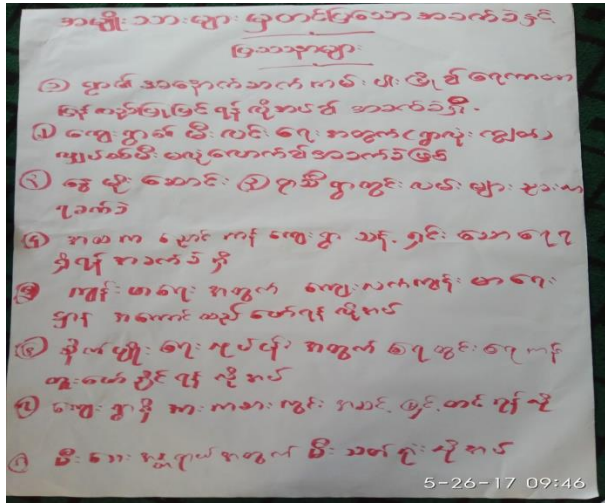 အမျိုးသားများ မှတင်ပြသော အခက်ခဲနှင့်
ပြဿနာများ
၁ ရွာ၏ အနောက်ဘက် ကမ်းပါးပြို၍ ရေကာတာ
ပြန်လည်ပြုပြင်ရန် လိုအပ်၍ အခက်ခဲရှိ.
၂ ကျေးရွာ၏ မီးလင်းရေး အတွက် (ရွာလုံးကျွတ်)
လျှပ်စစ်မီး မလုံလောက်၍ အခက်ခဲဖြစ်
၃ နွေ မိုး ဆောင်း ၃ ရာသီ ရွာတွင်းလမ်းများ သွားလာ
ရခက်ခဲ
၄ အထက ညောင်ကန်ကျေးရွာ သန့်ရှင်းသော ရေရ
ရှိရန် အခက်ခဲရှိ
ကျန်းမာရေး အတွက် ကျေးလက်ကျန်းမာရေး
ဌာန အကောင်ထည်ဖော်ရန် လိုအပ်
စိုက်ပျိုးရေးလုပ်ငန်း အတွက် ရေတွင်းရေကန်
တူးဖော်နိုင်ရန် လိုအပ်
၇ ကျေးရွာရှိ အားကစားကွင်း အဆင့်မြှင့်တင်ရန်လို
၈ မီးဘေးအန္တရာယ်အတွက် မီးသတ်ရုံးလိုအပ်
5-26-17 09:46